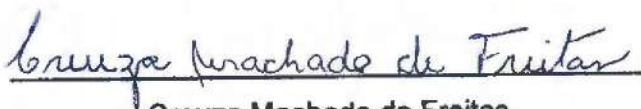 Creuza Machado de Freitas
Creuza Machado de Freitas